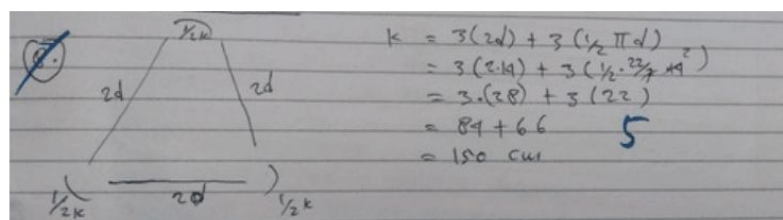 8.
1/2k
2d
2d
2d
1/2k
1/2k
k = 3(2d) + 3(1/2 πd)
= 3(2.14) + 3(1/2 . 22/7 . 14²)
= 3.(28) + 3(22)
= 84 + 66
= 150 cm
5